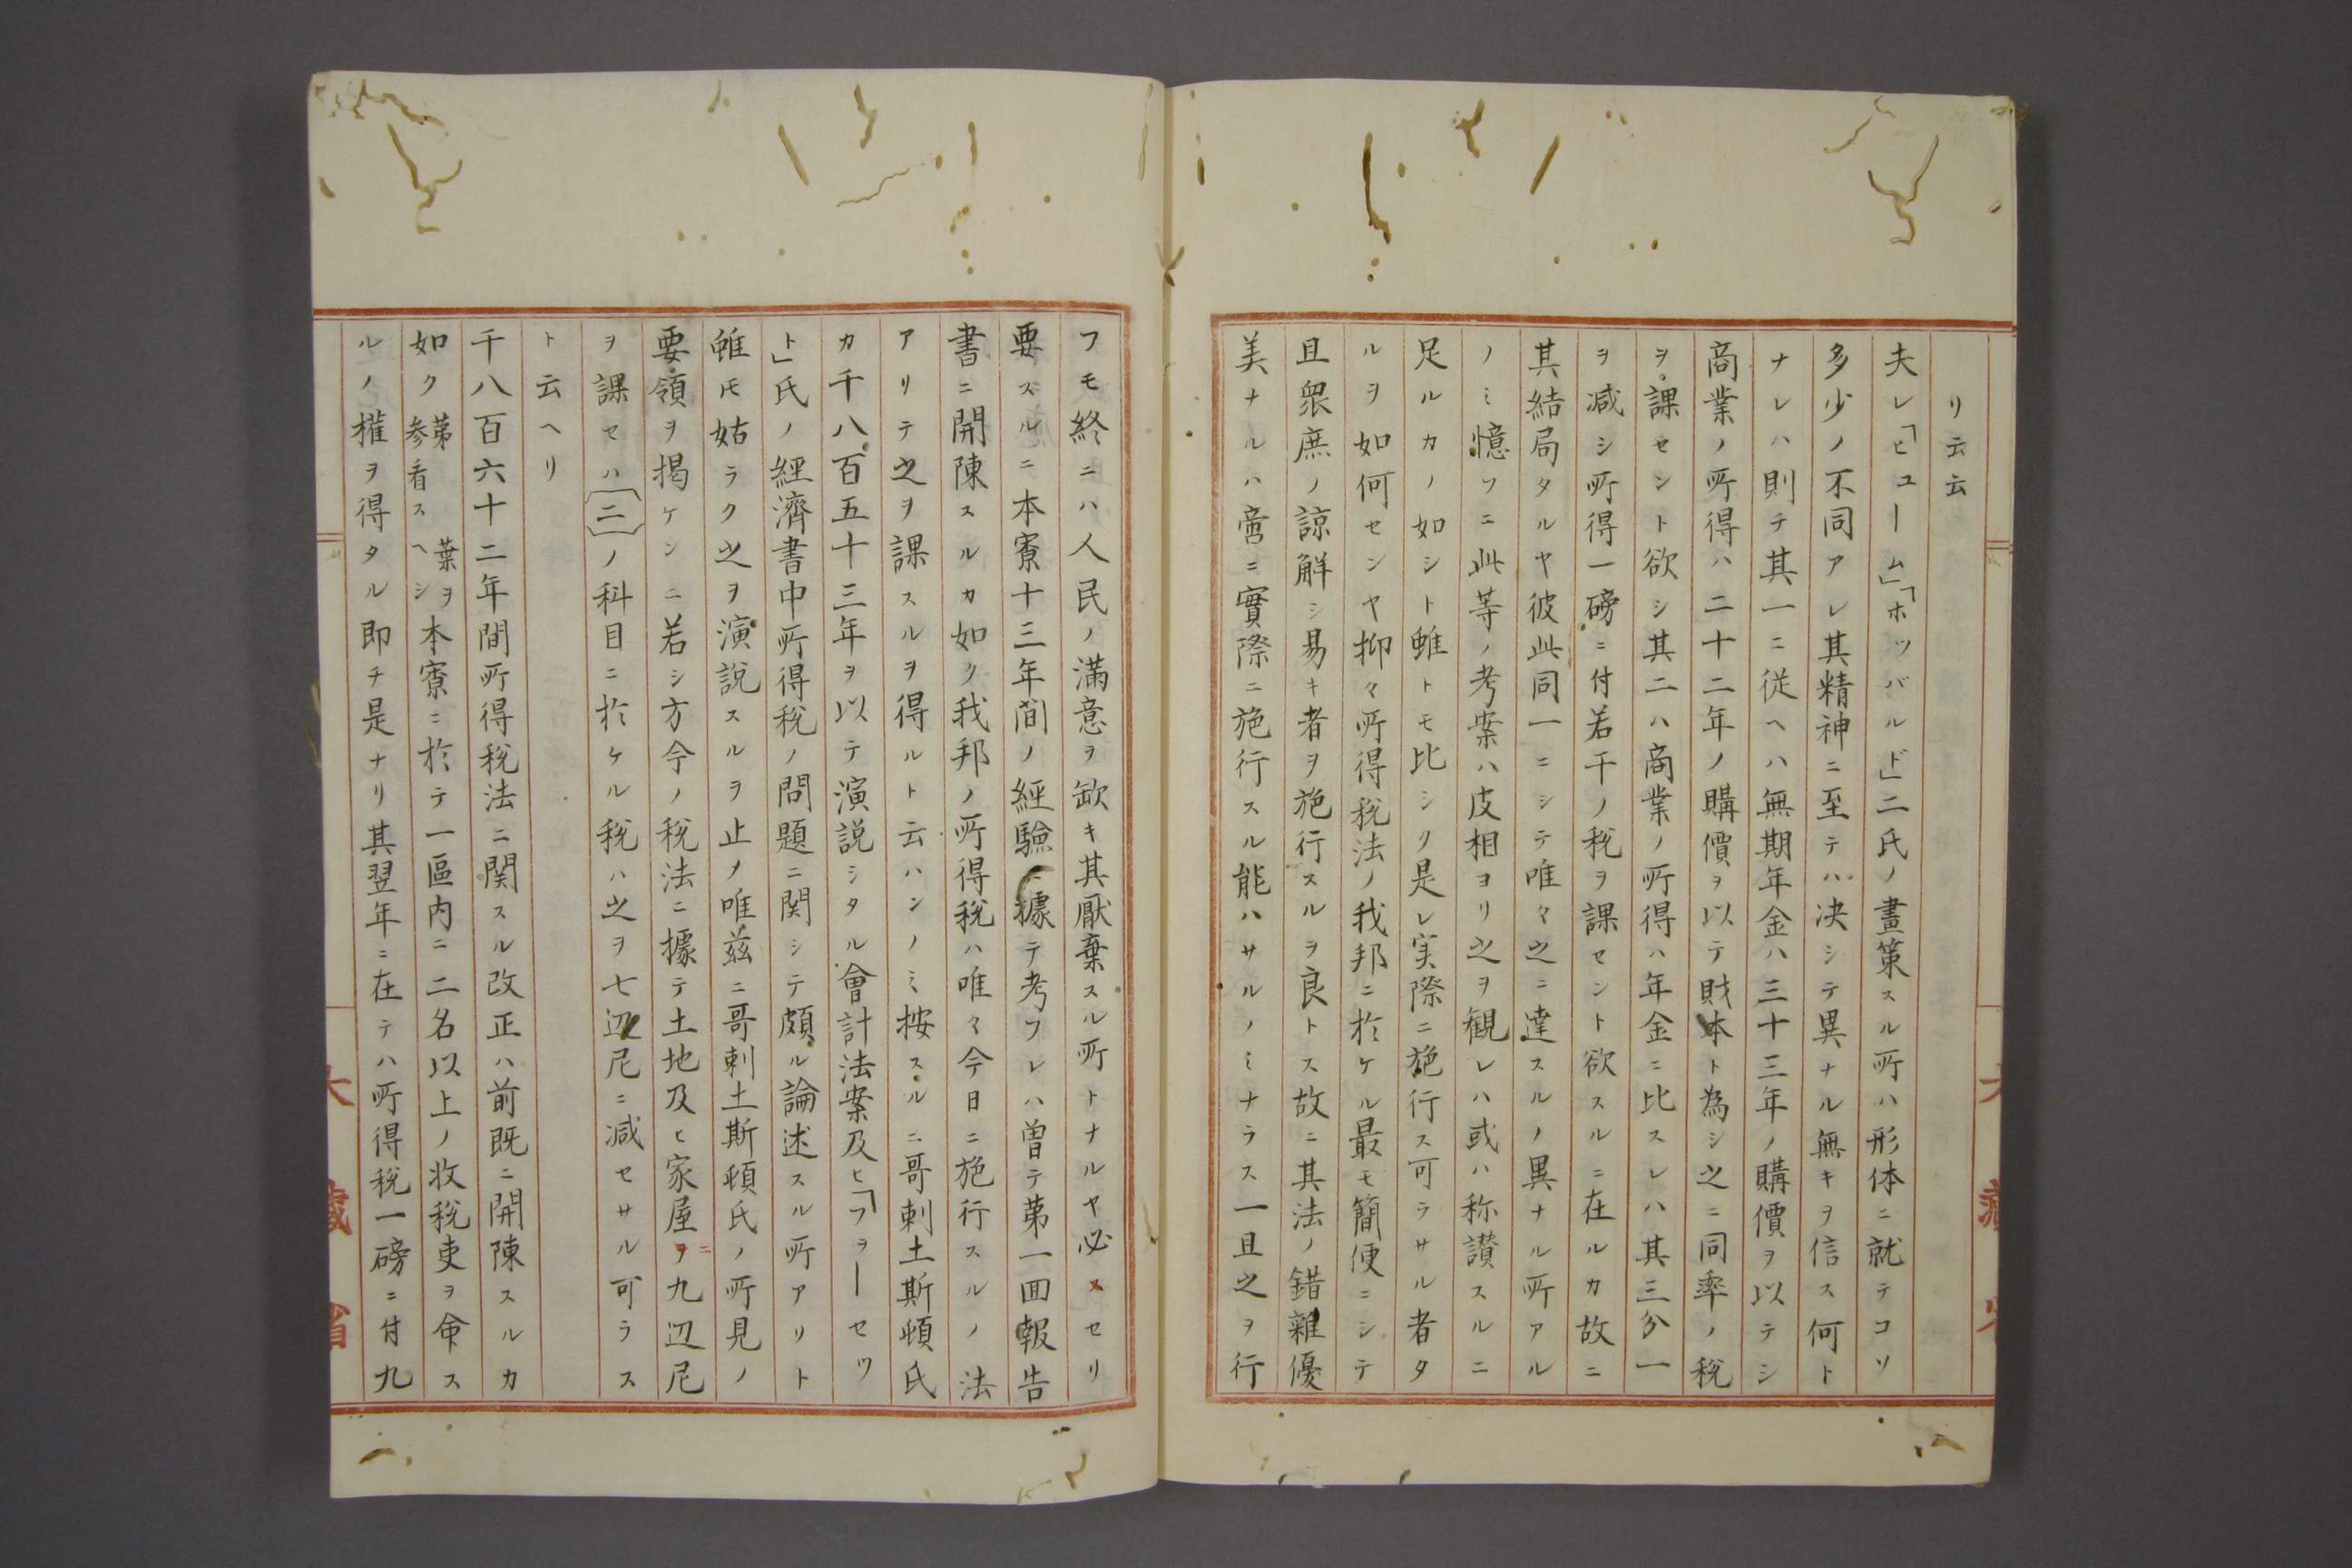 リ云云
夫レ「ヒユーム」「ホツバルド」二氏ノ畫策スル所ハ形体ニ就テコソ
多少ノ不同アレ其精神ニ至テハ决シテ異ナル無キヲ信ス何ト
ナレハ則チ其一ニ従ヘハ無期年金ハ三十三年ノ購價ヲ以テシ
商業ノ所得ハ二十二年ノ購價ヲ以テ財本ト為シ之ニ同率ノ税
ヲ課セント欲シ其二ハ商業ノ所得ハ年金ニ比スレハ其三分一
ヲ減シ所得一磅ニ付若干ノ税ヲ課セント欲スルニ在ルカ故ニ
其結局タルヤ彼此同一ニシテ唯々之ニ達スルノ異ナル所アル
ノミ憶フニ此等ノ考案ハ皮相ヨリ之ヲ観レハ或ハ称讃スルニ
足ルカノ如シト雖トモ比シク是レ実際ニ施行ス可ラサル者タ
ルヲ如何センヤ抑々所得税法ノ我邦ニ於ケル最モ簡便ニシテ
且衆庶ノ諒解シ易キ者ヲ施行スルヲ良トス故ニ其法ノ錯雜優
美ナルハ啻ニ實際ニ施行スル能ハサルノミナラス一旦之ヲ行
フモ終ニハ人民ノ滿意ヲ缺キ其厭棄スル所トナルヤ必スセリ
要スルニ本寮十三年間ノ經驗ニ據テ考フレハ曽テ第一回報告
書ニ開陳スルカ如ク我邦ノ所得税ハ唯々今日ニ施行スルノ法
アリテ之ヲ課スルヲ得ルト云ハンノミ按スルニ哥刺土斯頓氏
カ千八百五十三年ヲ以テ演説シタル會計法案及ヒ「フヲーセツ
ト」氏ノ經濟書中所得税ノ問題ニ関シテ頗ル論述スル所アリト
雖モ姑ラク之ヲ演説スルヲ止ノ唯茲ニ哥刺土斯頓氏ノ所見ノ
要領ヲ揭ケンニ若シ方今ノ税法ニ據テ土地及ヒ家屋ヲニ九辺尼
ヲ課セハ〔二〕ノ科目ニ於ケル税ハ之ヲ七辺尼ニ減セサル可ラス
ト云ヘリ
千八百六十二年間所得税法ニ関スル改正ハ前既ニ開陳スルカ
如ク第 葉ヲ参看スヘシ本寮ニ於テ一區内ニ二名以上ノ收税吏ヲ命ス
ルノ權ヲ得タル即チ是ナリ其翌年ニ在テハ所得税一磅ニ付九
大藏省